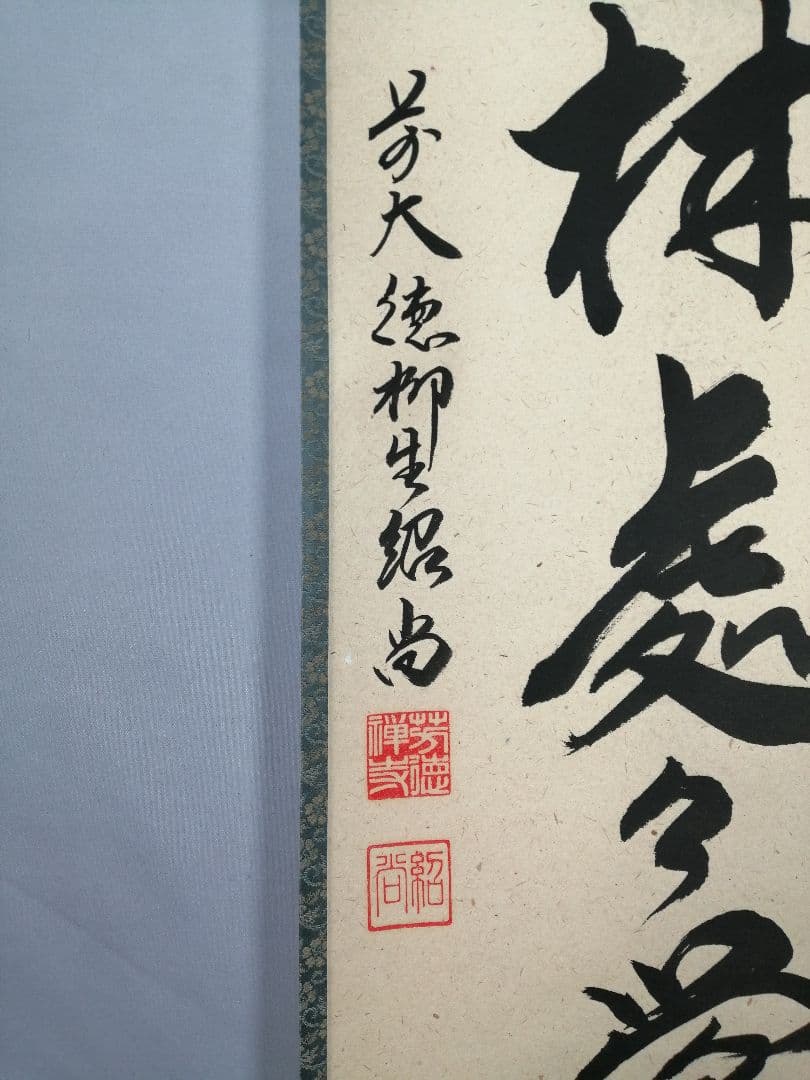 林處々鶯
前大徳柳生紹尚
芳徳禅寺
紹尚